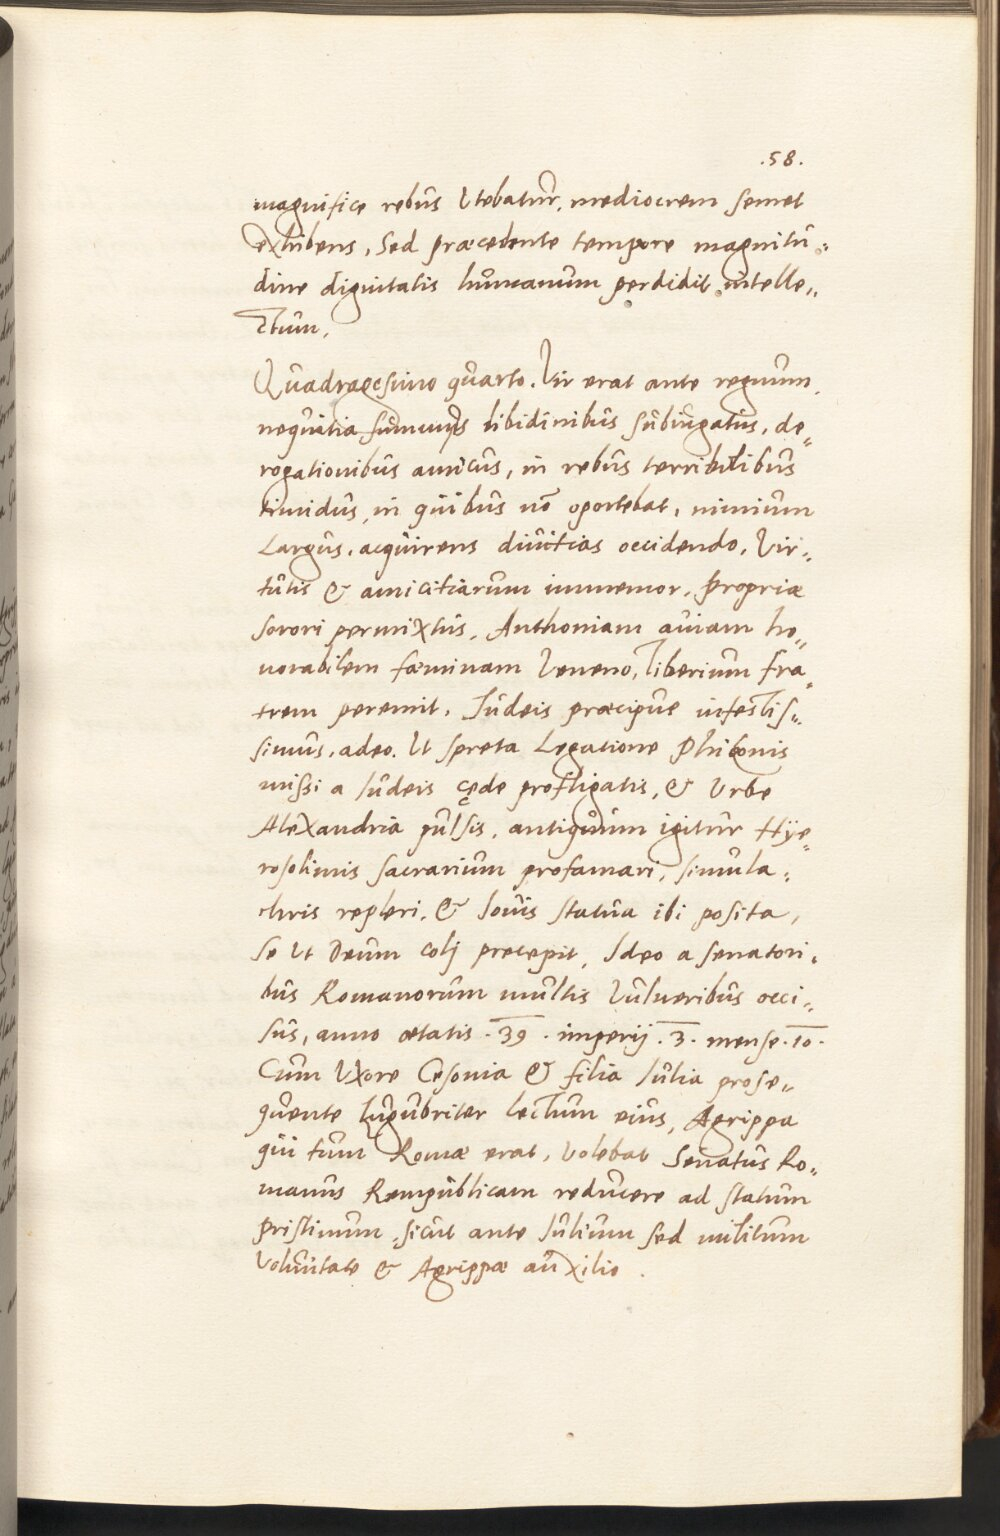 .58.
magnifice rebus Vtebatur, mediocrem semet
exhibens, Sed præcedente tempore magnitu„
dine dignitatis humanum perdidit intelle„
ctum.
Quadragesimo quarto. Vir erat ante regnum
nequitia summus libidinibus subiugatus, de„
rogationibus amicus, in rebus terribilibus
timidus, in quibus nõ oportebat, nimium
Largus, acquirens diuitias occidendo, Vir„
tutis & amicitiarum immemor, propriæ
sorori permixtus, Anthoniam auiam ho„
norabilem fæminam Veneno, Tiberium fra„
trem peremit, Iudeis præcipue infestis„
simus, adeo. Vt spreta Legatione Philonis
missi a Iudeis cęde profligatis, & Vrbe
Alexandria pulsis, antiquum igitur Hye„
rosolimis sacrarium profanari, simula„
chris repleri, & Iouis statua ibi posita,
se Vt Deum colj precepit, Ideo a senatori„
bus Romanorum multis Vulneribus occi„
sus, anno ætatis .39. imperij .3. mense .10.
Cum Vxore Cesonia & filia Iulia prose„
quente lugubriter lectum eius, Agrippa
qui tum Romæ erat, Volebat Senatus Ro„
manus Rempublicam reducere ad statum
pristinum, sicut ante Iulium sed militum
Voluntate & Agrippæ auxilio.